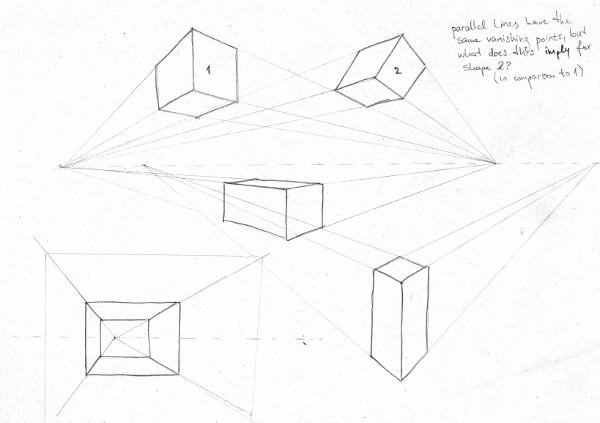 parallel lines have the
same vanishing points, but
what does this imply for
shape 2?
(in comparison to 1)
1
2